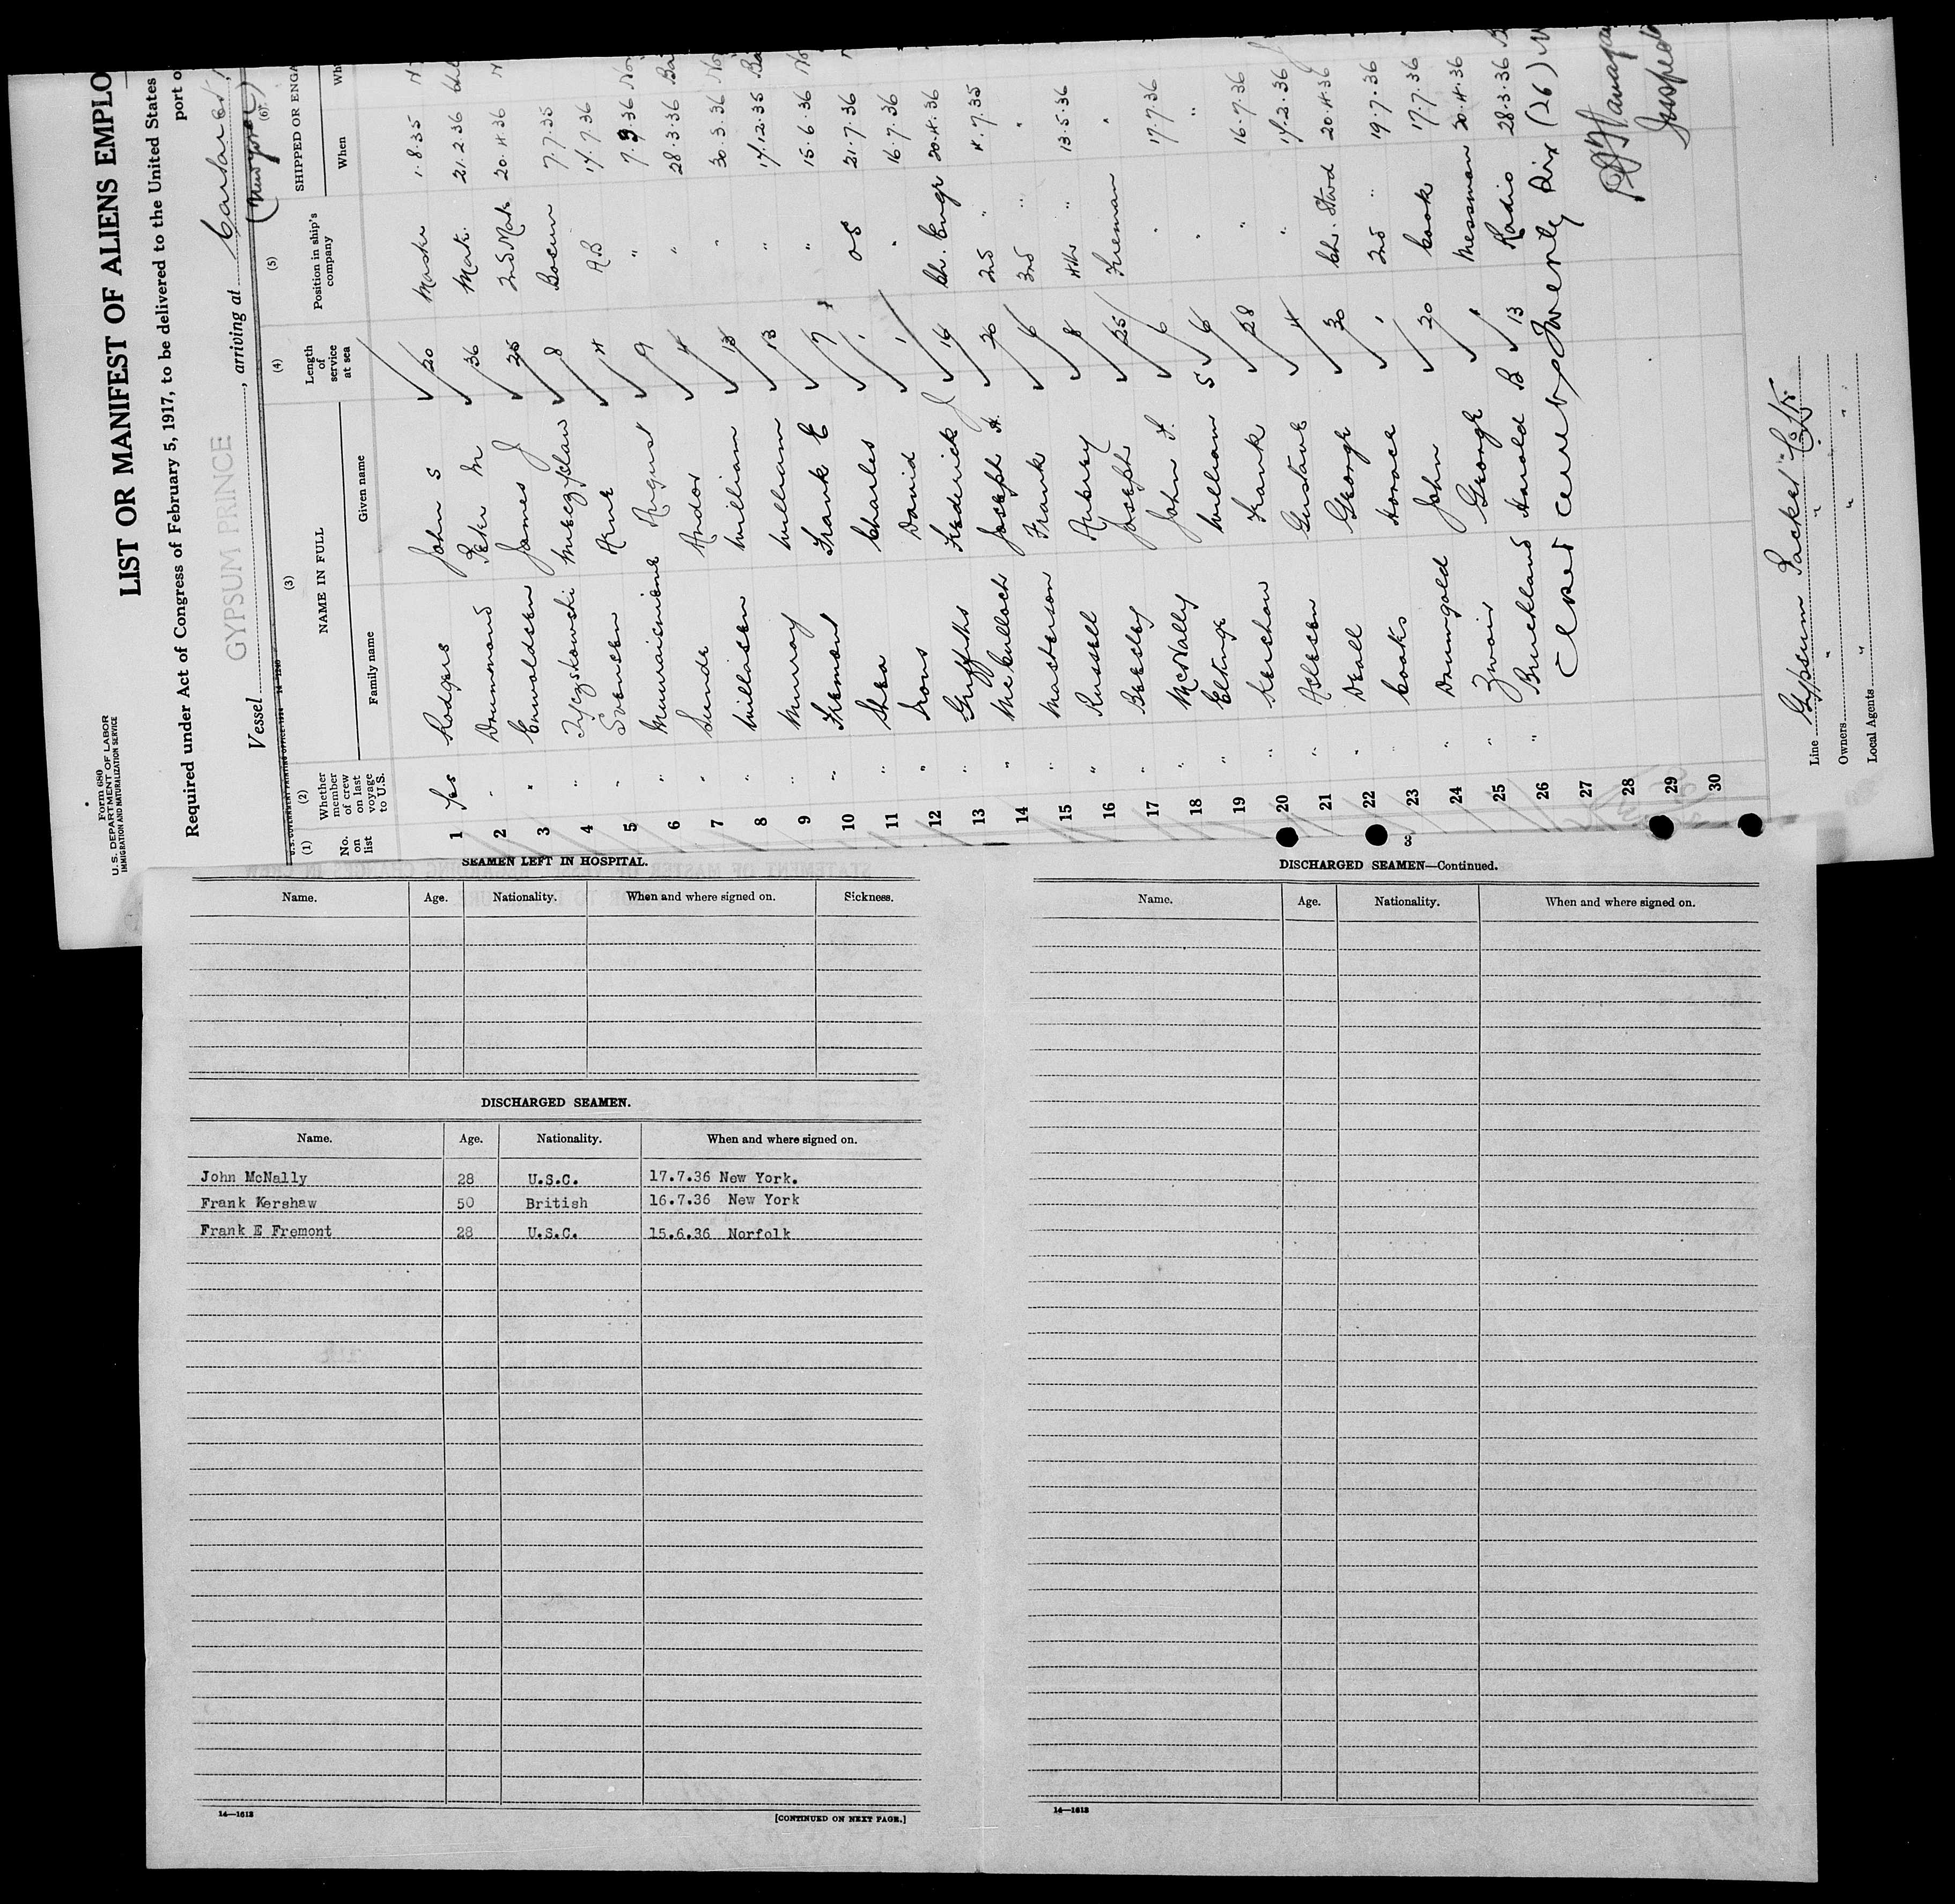 Form 680
U. S. DEPARTMENT OF LABOR
IMMIGRATION AND NATURALIZATION SERVICE
LIST OR MANIFEST OF ALIENS EMPLO
Required under Act of Congress of February 5, 1917, to be delivered to the United States
port o
Vessel GYPSUM PRINCE, arriving at
(1) (2) (3) (4) (5) (6)
No. on list
Whether member of crew on last voyage to U.S.
NAME IN FULL
Family name Given name
Length of service at sea
Position in ship's company
SHIPPED OR ENGA
When Wh
1 Yes Rodgers John S 20 Master 1.8.35
2 " Drummond Peter M 36 Mate 21.2.36
3 " Enwoldsen James J 25 2nd Mate 20.4.36
4 " 8 Bosun 7.7.35
5 " Svensen Arne 4 AB 17.7.36
6 " August 9 " 7.9.36 Nor
7 " Sunde Andor 4 " 28.3.36 Ba
8 " Willassen William 13 " 30.3.36 No
9 " Murray William 13 " 17.12.35 Ba
10 " Fremont Frank E 7 " 15.6.36 No
11 " Shea Charles 1 OS 21.7.36
12 " Irons David 1 " 16.7.36
13 " Griffiths Frederick J 16 Ch. Engr 20.4.36
14 " McCulloch Joseph A. 30 2nd " 4.7.35
15 " Masterson Frank 6 3rd " "
16 " Russell Aubrey 8 4th " 13.5.36
17 " Beesley Joseph 25 Fireman "
18 " McNally John F. 6 " 17.7.36
19 " Eltinge William S 6 " "
20 " Kershaw Frank 28 " 16.7.36
21 " Acleson Gustave 4 " 17.2.36
22 " Deall George 30 Ch. Stwd 20.4.36
23 Cooks Horace 1 2nd " 19.7.36
24 " Drumgold John 20 Cook 17.7.36
25 " Zwoir George 1 Messman 20.4.36
26 " Bruckland Harold B 13 Radio 28.3.36 B
27 Closed Twenty Six (26)
28
29
30
Line Gypsum Packet Co. Ltd.
Owners " " "
Local Agents " " "
3
SEAMEN LEFT IN HOSPITAL.
Name. Age. Nationality. When and where signed on. Sickness.
DISCHARGED SEAMEN.
Name. Age. Nationality. When and where signed on.
John McNally 28 U.S.C. 17.7.36 New York.
Frank Kershaw 50 British 16.7.36 New York
Frank E Fremont 28 U.S.C. 15.6.36 Norfolk
14—1613
[CONTINUED ON NEXT PAGE.]
DISCHARGED SEAMEN—Continued.
Name. Age. Nationality. When and where signed on.
14—1613